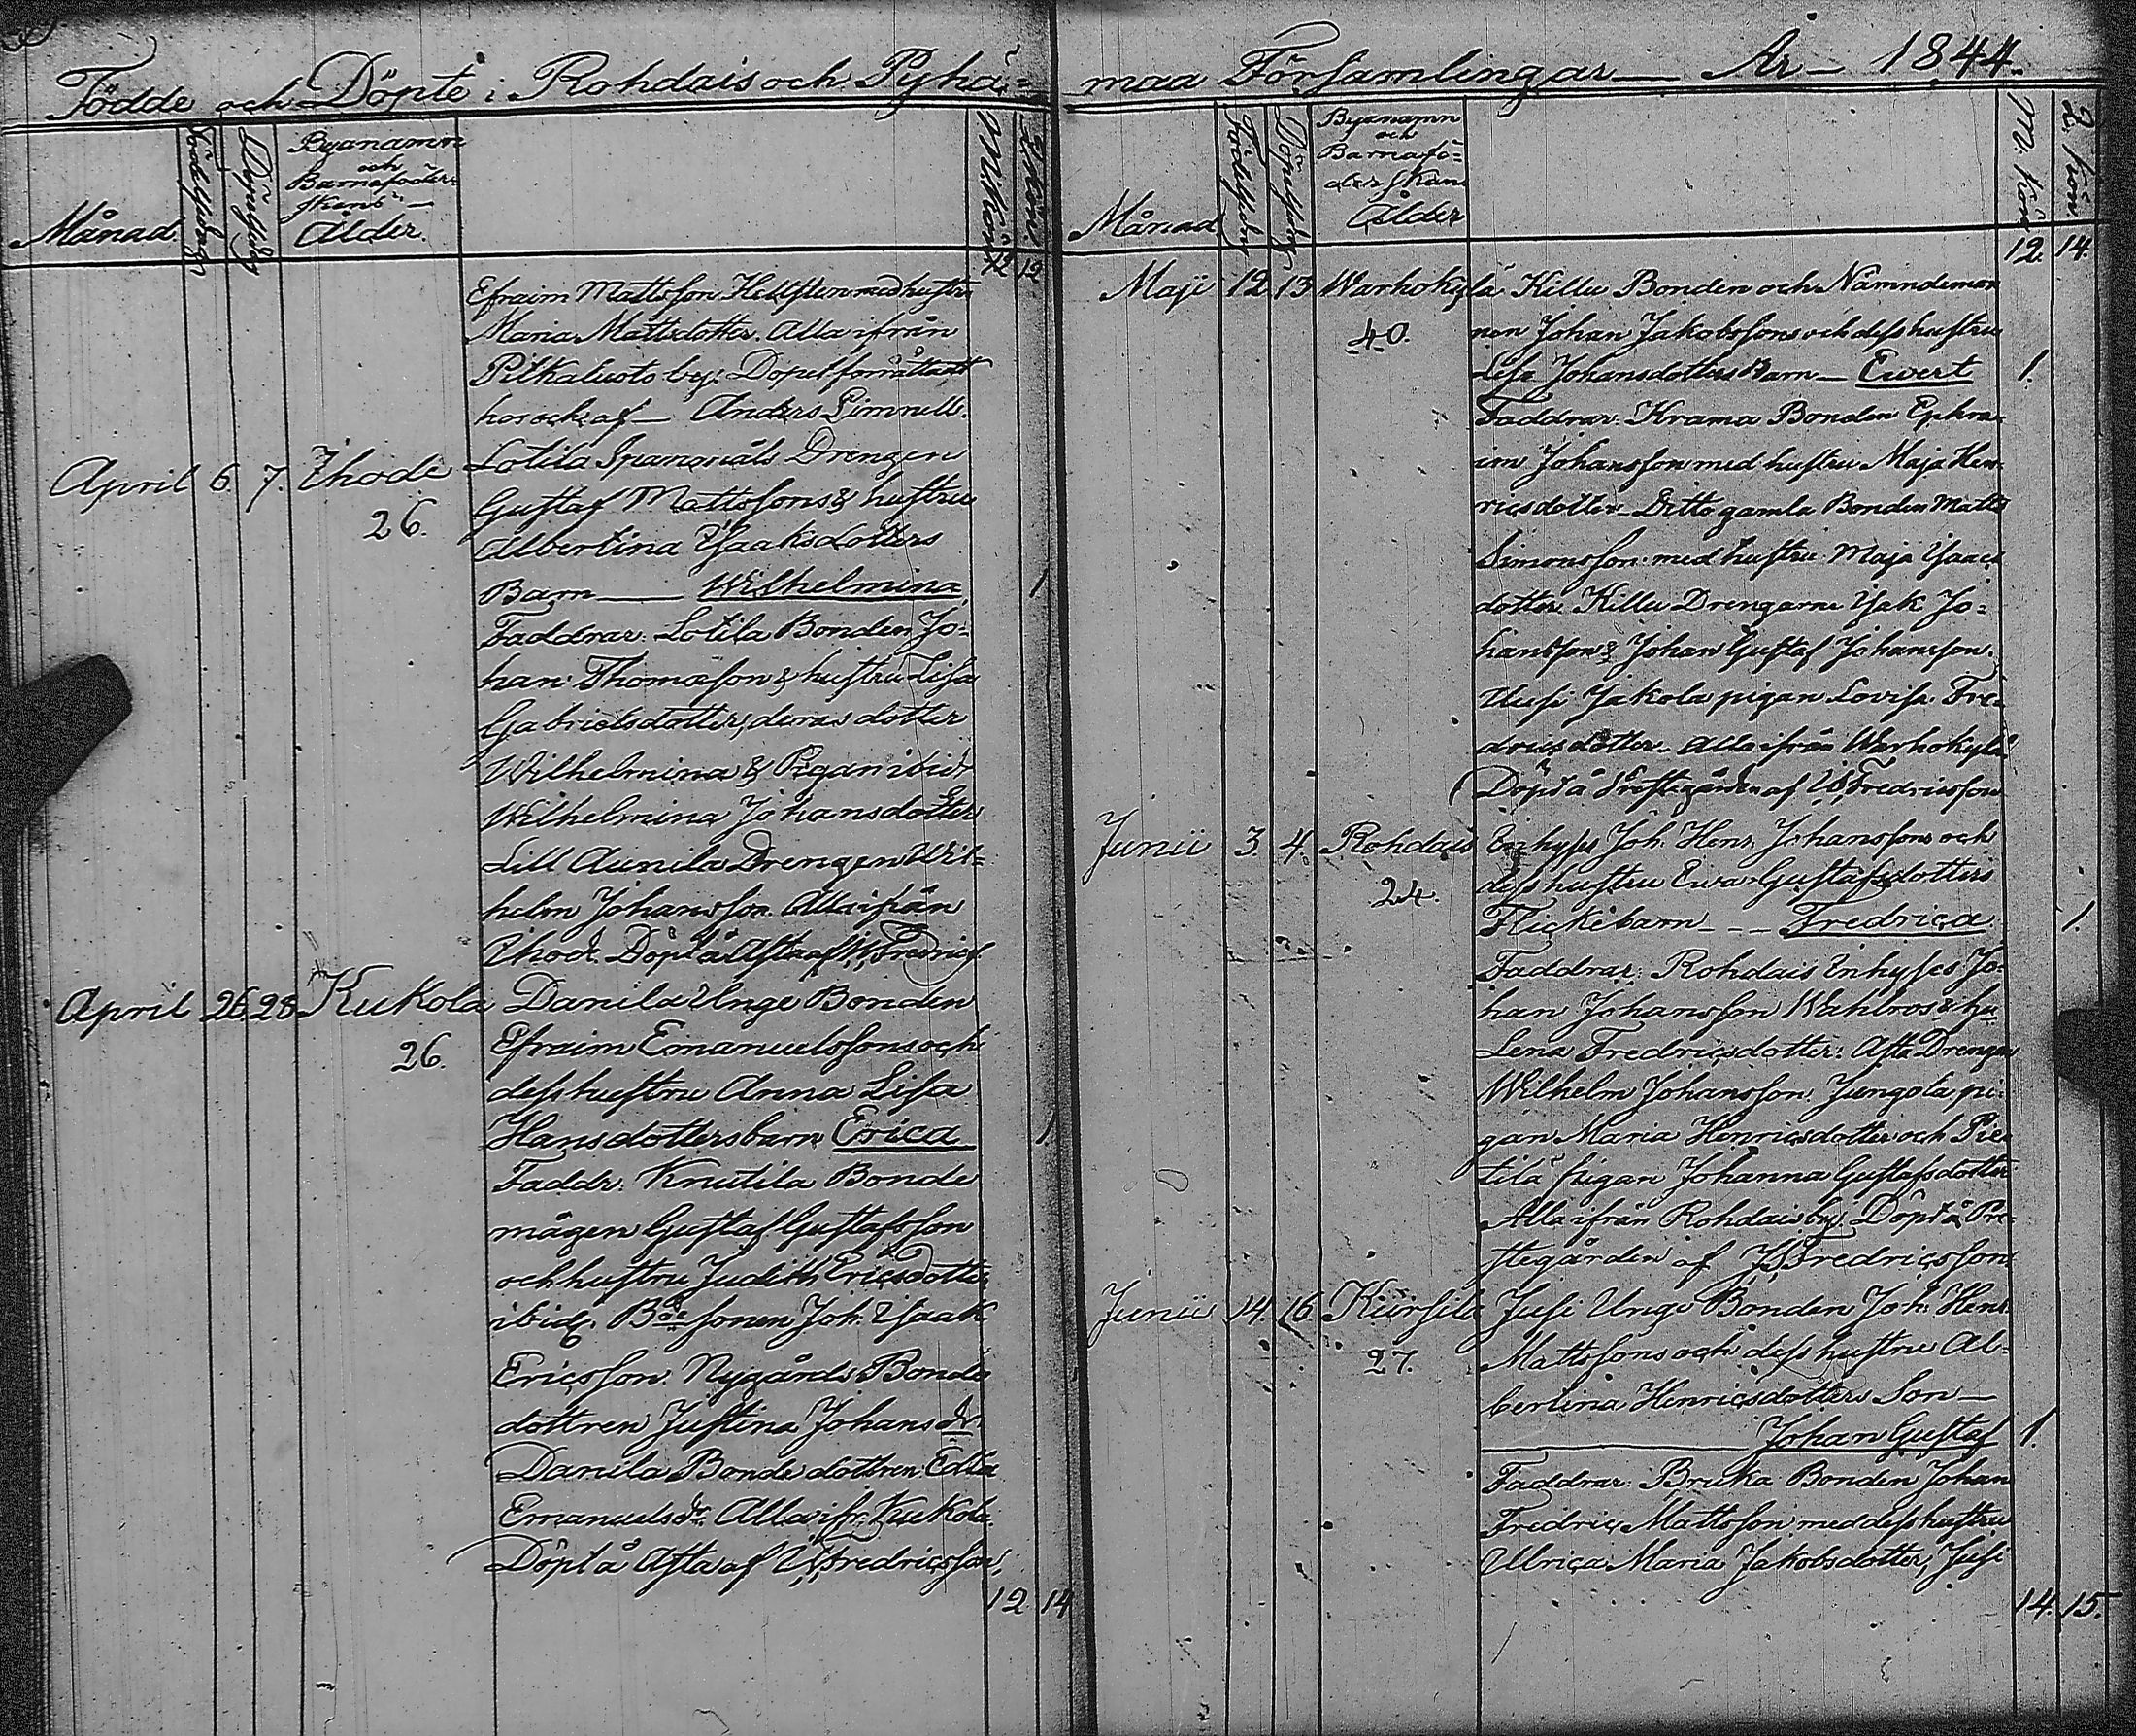 Födde och Döpte i Rohdais och Pyhä=
Månad.
Födelsedag
Döpelsedag
Byanamn
och
Barnaföder=
skens
Ålder.
M. Kön
Q. Kön
12 12
Efraim Mattsson Hellsten med hustru
Maria Mattsdotter. Alla ifrån
Pitkaluoto by. Dopet förrättadt
hos och af — Anders Limnell.
April 6. 7. Ihode
26.
Lotila Drengen
Gustaf Mattssons & hustru
Albertina Isaaksdotters
Barn — Wilhelmina 1
Faddrar: Lotila Bonden Jo=
han Thomasson & hustru Lisa
Gabrielsdotter, deras dotter
Wilhelmina & Pigan ibid.
Wilhelmina Johansdotter
Lill Aunila Drengen Wil=
helm Johansson. Alla ifrån
Ihode. Döpt å Asta af
April 26 28 Kukola
26.
Danila Unge Bonden
Efraim Emanuelssons och
dess hustru Anna Lisa
Hansdotters barn Erica 1
Faddr. Knutila Bonde
mågen Gustaf Gustafsson
och hustru Judith Ericsdotter
ibid. Bde sonen Joh. Isaak
Ericsson. Nygårds Bonde
dottren Justina Johansdr.
Danila Bonde dottren Edla
Emanuelsdr. Alla ifr. Kukola.
Döpt å Asta af Fredricsson.
12 14
maa Församlingar — År — 1844.
Månad
Födelsedag
Döpelsedag
Byanamn
och
Barnafö=
derskans
Ålder
M. Kön
Q. Kön
12. 14.
Maji 12 13 Warhokylä
40.
Killu Bonden och Nämndeman
nen Johan Jakobssons och dess hustru
Lisa Johansdotters Barn — Ewert 1.
Faddrar: Krama Bonden Ephra=
im Johansson med hustru Maja Hen=
ricsdotter. Ditto gamla Bonden Matts
Simonsson med hustru Maja Isaacs
dotter. Killu Drengarne Isak Jo=
hansson & Johan Gustaf Johansson.
Uusi Jakola pigan Lovisa Fre=
dricsdotter. Alla ifrån Warhokylä
Döpt å Prestegården af Fredricsson
Junii 3. 4. Rohdais
24.
Inhyses Joh. Henr. Johanssons och
dess hustru Ewa Gustafsdotters
Flickebarn - - - Fredrica 1.
Faddrar: Rohdais Inhyses Jo=
han Johansson Wahlros & hu
Lena Fredricsdotter: Asta Drengen
Wilhelm Johansson. Jungola pi=
gan Maria Henricsdotter och Pie=
tilä pigan Johanna Gustafsdotter
Alla ifrån Rohdais by. Döpt å Pre=
stegården af Fredricsson.
Junii 14. 16. Kursila
27.
Jusi Unge Bonden Joh. Henr.
Mattssons och dess hustru Al=
bertina Henricsdotters Son —
Johan Gustaf 1.
Faddrar: Bruka Bonden Johan
Fredric Mattsson med dess hustru
Ulrica Maria Jakobsdotter, Jusi
14. 15.